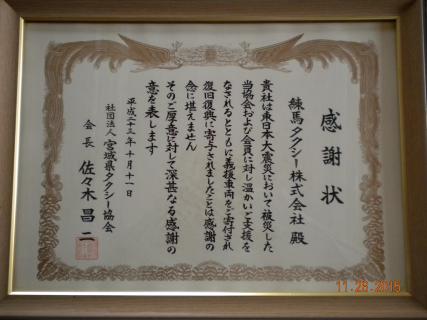 感謝状
練馬タクシー株式会社 殿
貴社は東日本大震災において被災した
当協会および会員に対し温かいご支援を
なされるとともに義援車両をご寄付され
復旧復興に寄与されましたことは感謝の
念に堪えません
そのご厚意に対して深甚なる感謝の
意を表します
平成二十三年十月十一日
社団法人 宮城県タクシー協会
会長 佐々木昌二
11.28.2015